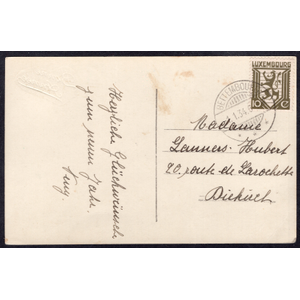 Herzliche Glückwünsche
zum neuen Jahr.
LUXEMBOURG
10 C
Madame
Lanners-Hubert
20. route de Larochette
Diekirch